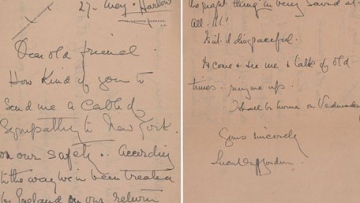 27 - May - Harbor
Dear old friend.
How kind of you to
send me a Cable of
Sympathy to New York.
on our safety. According
to the way we've been treated
in England on our return
the great thing in being saved at
all !!!
Isn't it disgraceful.
Do come & see me & talk of old
times. Ring me up.
I shall be home on Wednesday
Yours sincerely